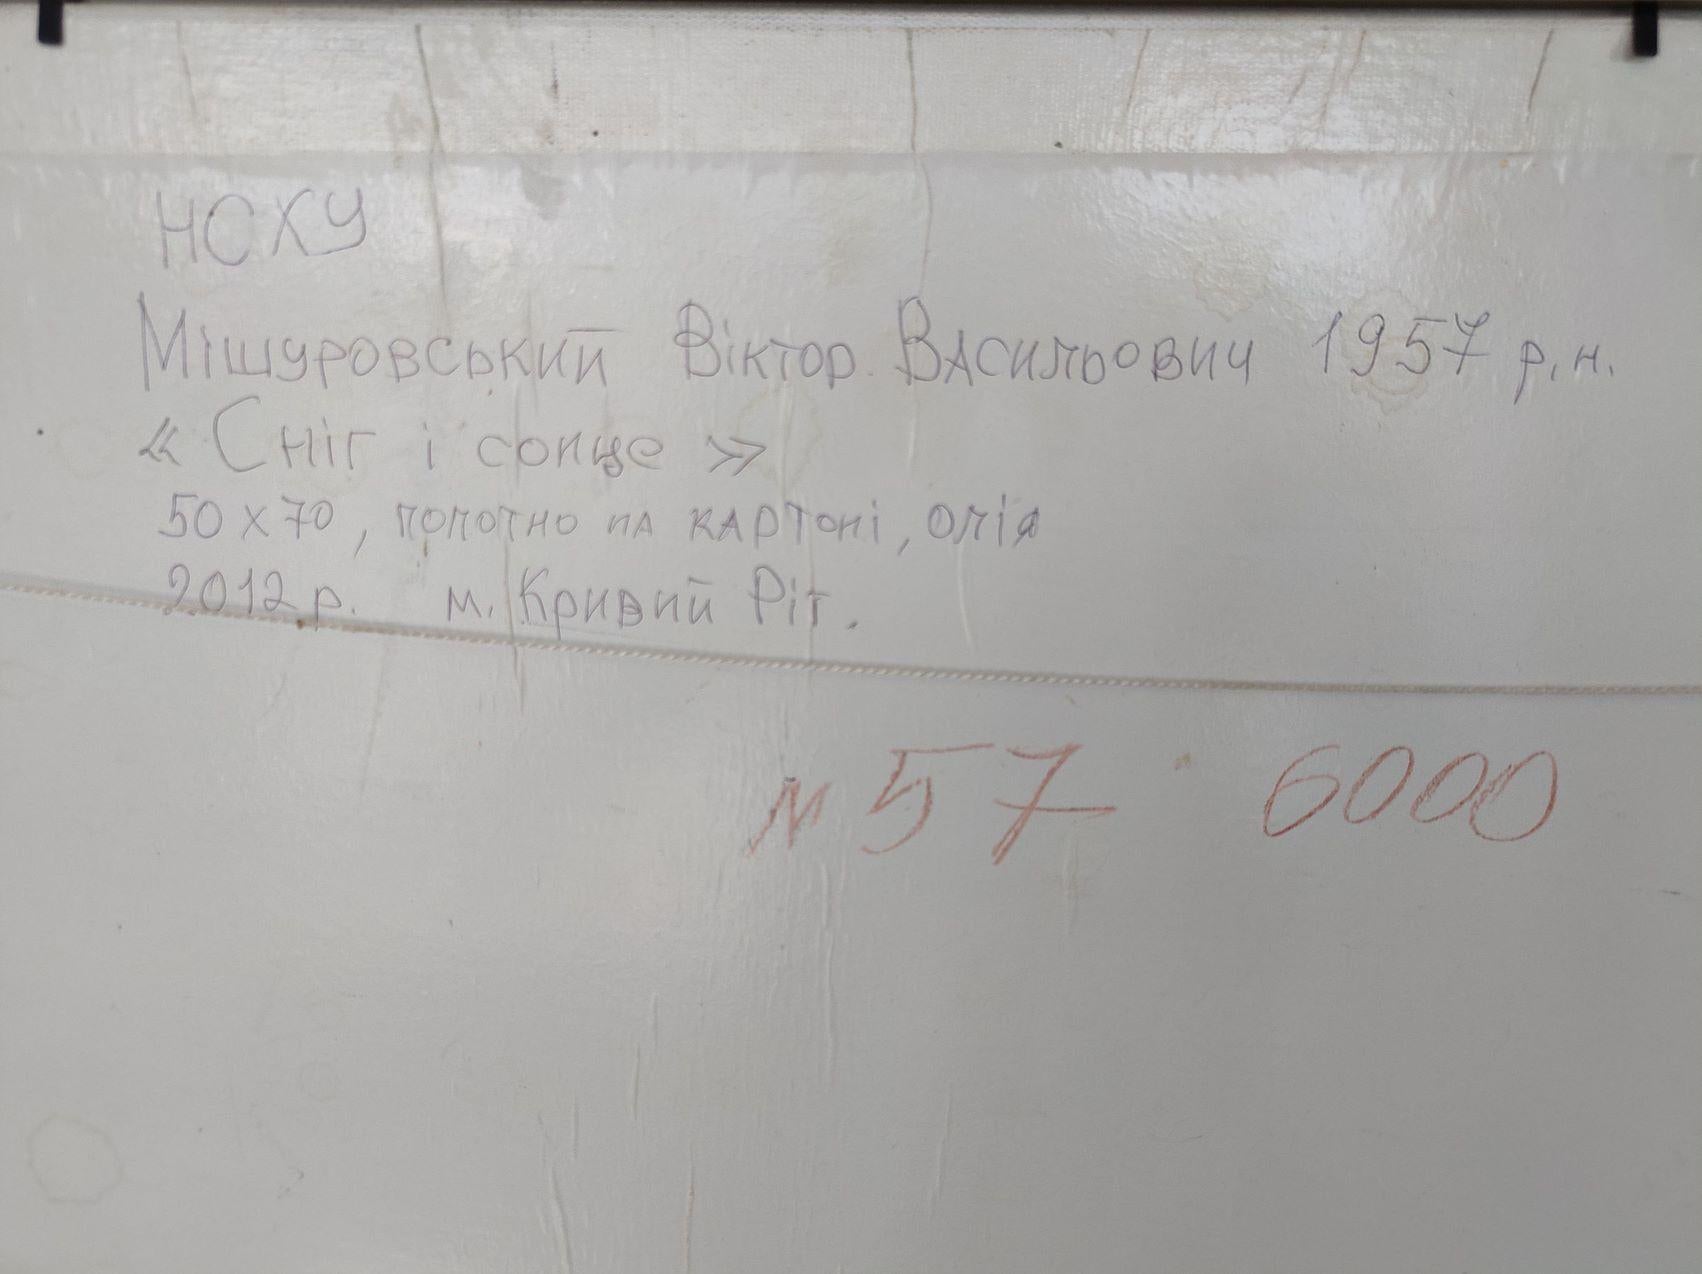 НСХУ
Мішуровський Віктор Васильович 1957 р.н.
«Сніг і сонце»
50х70, полотно на картоні, олія
2012 р. м. Кривий Ріг.
№ 57 6000